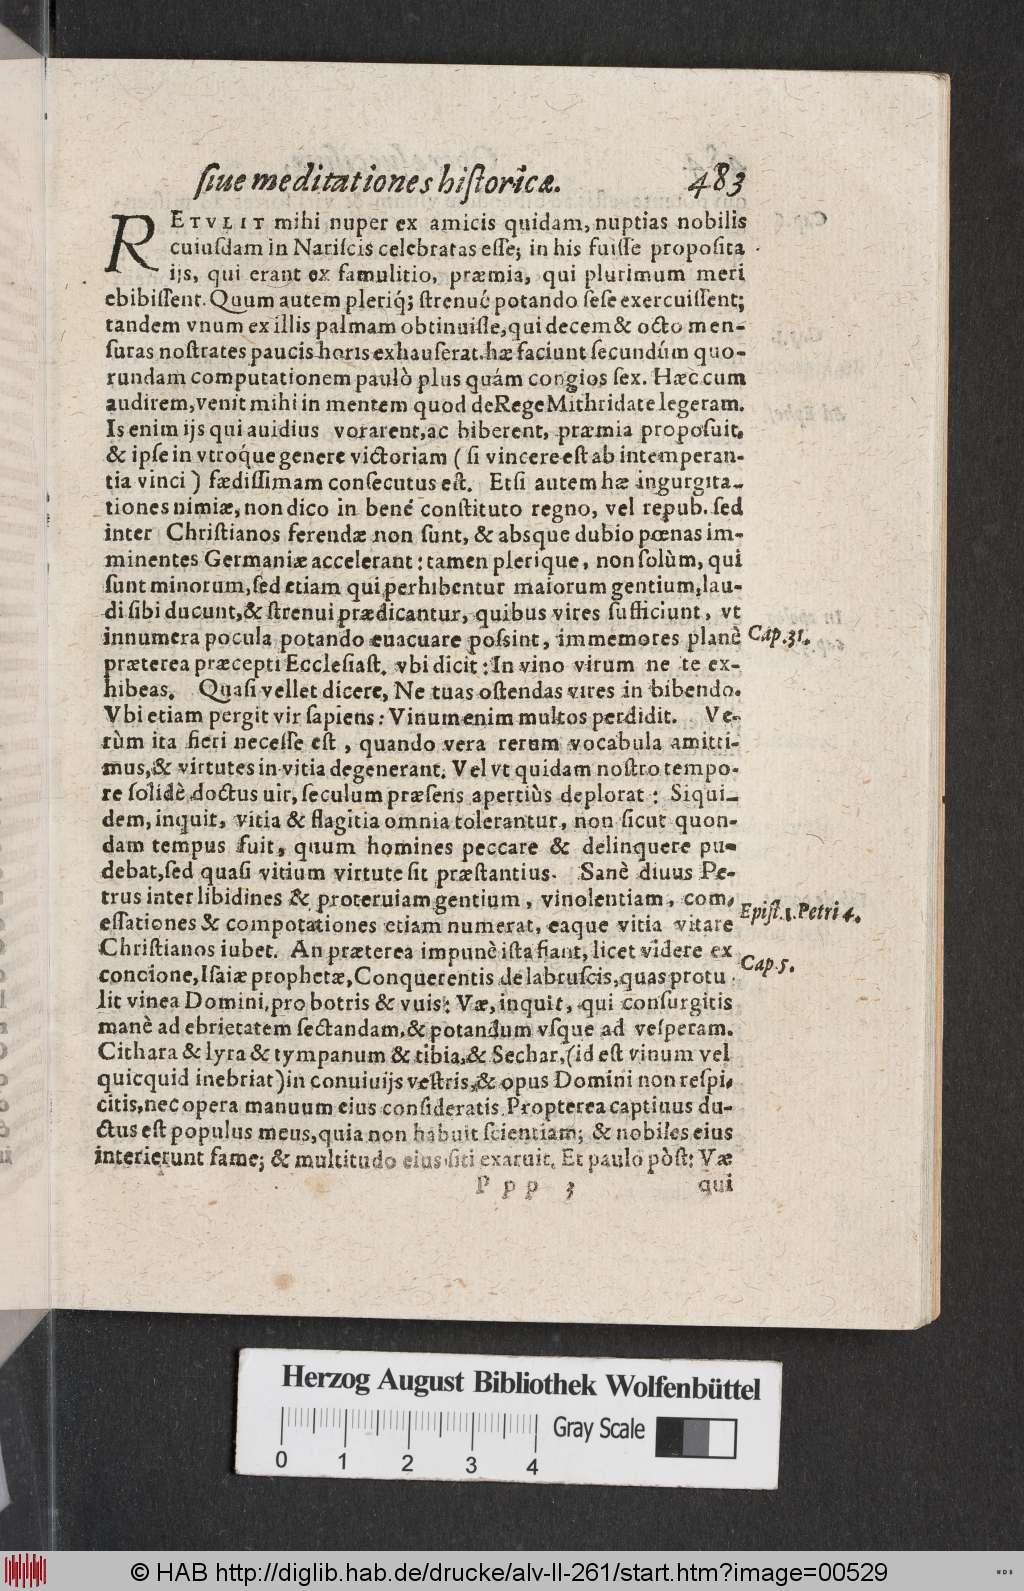 ſiue meditationes hiſtoricæ. 483
RETVLIT mihi nuper ex amicis quidam, nuptias nobilis
cuiuſdam in Nariſcis celebratas eſſe; in his fuiſſe propoſita
ijs, qui erant ex famulitio, præmia, qui plurimum meri
ebibiſſent. Quum autem pleriq́; ſtrenué potando ſeſe exercuiſſent;
tandem vnum ex illis palmam obtinuiſſe, qui decem & octo men-
ſuras noſtrates paucis horis exhauſerat. hæ faciunt ſecundúm quo-
rundam computationem paulò plus quám congios ſex. Hæc cum
audirem, venit mihi in mentem quod de Rege Mithridate legeram.
Is enim ijs qui auidius vorarent, ac biberent, præmia propoſuit,
& ipſe in vtroq́ue genere victoriam (ſi vincere eſt ab intemperan-
tia vinci) fædiſſimam conſecutus eſt. Etſi autem hæ ingurgita-
tiones nimiæ, non dico in bené conſtituto regno, vel repub. ſed
inter Chriſtianos ferendæ non ſunt, & absque dubio pœnas im-
minentes Germaniæ accelerant: tamen plerique, non ſolùm, qui
ſunt minorum, ſed etiam qui perhibentur maiorum gentium, lau-
di ſibi ducunt, & ſtrenui prædicantur, quibus vires ſufficiunt, vt
innumera pocula potando euacuare poſsint, immemores planè
Cap. 31.
præterea præcepti Eccleſiaſt. vbi dicit: In vino virum ne te ex-
hibeas. Quaſi vellet dicere, Ne tuas oſtendas vires in bibendo.
Vbi etiam pergit vir ſapiens: Vinum enim multos perdidit. Ve-
rùm ita fieri neceſſe eſt, quando vera rerum vocabula amitti-
mus, & virtutes in vitia degenerant. Vel vt quidam noſtro tempo-
re ſolidè doctus uir, ſeculum præſens apertiùs deplorat: Siqui-
dem, inquit, vitia & flagitia omnia tolerantur, non ſicut quon-
dam tempus fuit, quum homines peccare & delinquere pu-
debat, ſed quaſi vitium virtute ſit præſtantius. Sanè diuus Pe-
trus inter libidines & proteruiam gentium, vinolentiam, com-
Epiſt. 1. Petri 4.
eſſationes & compotationes etiam numerat, eaque vitia vitare
Chriſtianos iubet. An præterea impunè iſta fiant, licet videre ex
Cap. 5.
concione, Iſaiæ prophetæ, Conquerentis de labruſcis, quas protu
lit vinea Domini, pro botris & vuis: Væ, inquit, qui conſurgitis
manè ad ebrietatem ſectandam, & potandum vſque ad veſperam.
Cithara & lyra & tympanum & tibia, & Sechar, (id eſt vinum vel
quicquid inebriat) in conuiuijs veſtris, & opus Domini non reſpi-
citis, nec opera manuum eius conſideratis. Propterea captiuus du-
ctus eſt populus meus, quia non habuit ſcientiam; & nobiles eius
interierunt fame; & multitudo eius ſiti exaruit. Et paulo pòſt: Væ
P p p 3 qui
Herzog August Bibliothek Wolfenbüttel
0 1 2 3 4 Gray Scale
© HAB http://diglib.hab.de/drucke/alv-ll-261/start.htm?image=00529